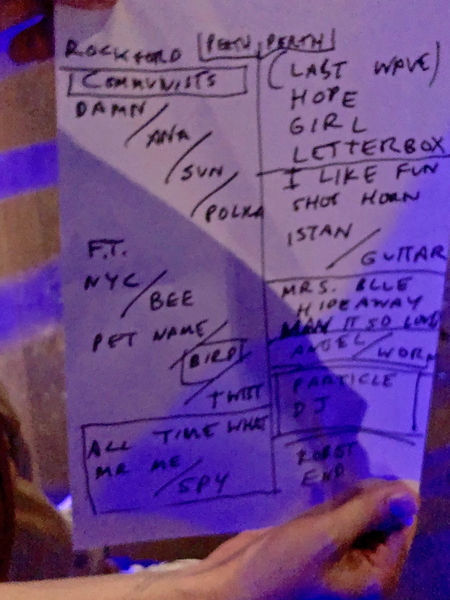 ROCKFORD
PERTH, PERTH
COMMUNISTS
DAMN/
ANA
/SUN
/POLKA
F.T.
NYC/
BEE
PET NAME/
BIRD
/TWIST
ALL TIME WHAT
MR ME
/SPY
(LAST WAVE)
HOPE
GIRL
LETTERBOX
I LIKE FUN
SHOE HORN
ISTAN
/GUITAR
MRS. BLUE
HIDEAWAY
MAN IT SO LOUD
ANGEL/WORM
PARTICLE
DJ
ROBOT
END